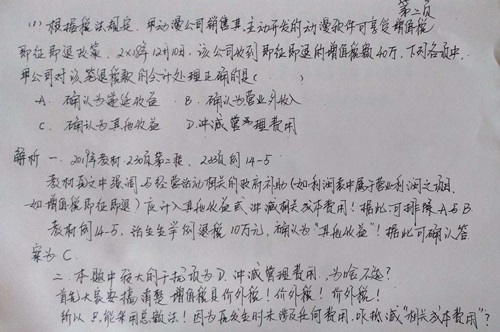 第二页
(1)根据税法规定,甲动漫公司销售其主动开发的动漫软件可享受增值税
即征即退政策,2×18年12月10日,该公司收到即征即退的增值税税额40万,下列各项中,
甲公司对该笔退税款的会计处理正确的是( )
A. 确认为递延收益 B. 确认为营业外收入
C. 确认为其他收益 D. 冲减管理费用
解析 一、2019年教材230页第二段,233页例14-5
教材原文中强调与经营活动相关的政府补助(如利润表中属于营业利润之项目,
如增值税即征即退)应计入其他收益或冲减相关成本费用!据此可排除A与B
教材例14-5,活生生举例退税10万元,确认为“其他收益”!据此可确认答
案为C.
二、本题中较大的干扰项为D.冲减管理费用,为啥不选?
首先大家要搞清楚 增值税是价外税!价外税!价外税!
所以只能采用总额法!因为在发生时未涉及任何费用,咋抵减“相关成本费用”?